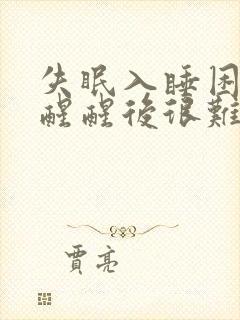 失眠入睡困
醒醒後很難
賈亮